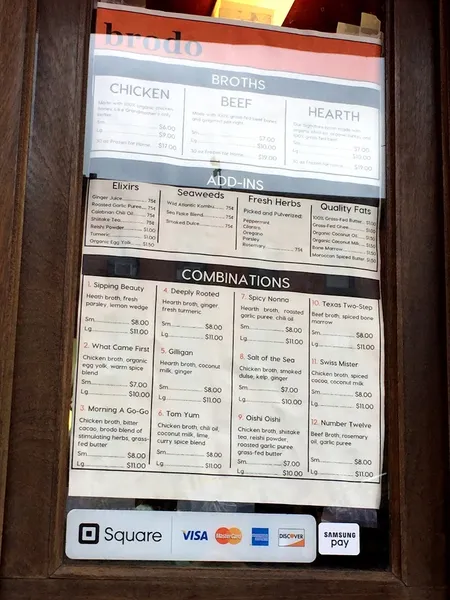 brodo
BROTHS
CHICKEN
$6.00
$9.00
$17.00
BEEF
$7.00
$10.00
$19.00
HEARTH
$7.00
$10.00
$19.00
ADD-INS
Elixirs
Ginger Juice 75¢
Roasted Garlic Puree 75¢
Calabrian Chili Oil 75¢
Shiitake Tea 75¢
Reishi Powder $1.00
Turmeric $1.00
Organic Egg Yolk $1.50
Seaweeds
Wild Atlantic Kombu 75¢
Sea Pulse Blend 75¢
Smoked Dulse 75¢
Fresh Herbs
Picked and Pulverized:
Peppermint
Cilantro
Oregano
Parsley
Rosemary 75¢
Quality Fats
100% Grass-Fed Butter $1.50
Grass-Fed Ghee $1.50
Organic Coconut Oil $1.50
Organic Coconut Milk $1.50
Bone Marrow $1.50
Moroccan Spiced Butter $1.50
COMBINATIONS
1. Sipping Beauty
Hearth broth, fresh
parsley, lemon wedge
Sm. $8.00
Lg. $11.00
2. What Came First
Chicken broth, organic
egg yolk, warm spice
blend
Sm. $7.00
Lg. $10.00
3. Morning A Go-Go
Chicken broth, bitter
cacao, brodo blend of
stimulating herbs, grass-
fed butter
Sm. $8.00
Lg. $11.00
4. Deeply Rooted
Hearth broth, ginger
fresh turmeric
Sm. $8.00
Lg. $11.00
5. Gilligan
Hearth broth, coconut
milk, ginger
Sm. $8.00
Lg. $11.00
6. Tom Yum
Chicken broth, chili oil,
coconut milk, lime,
curry spice blend
Sm. $8.00
Lg. $11.00
7. Spicy Nonna
Hearth broth, roasted
garlic puree, chili oil
Sm. $8.00
Lg. $11.00
8. Salt of the Sea
Chicken broth, smoked
dulse, kelp, ginger
Sm. $8.00
Lg. $11.00
9. Oishi Oishi
Chicken broth, shiitake
tea, reishi powder,
roasted garlic puree,
grass-fed butter
Sm. $7.00
Lg. $10.00
10. Texas Two-Step
Beef broth, spiced bone
marrow
Sm. $8.00
Lg. $11.00
11. Swiss Mister
Chicken broth, spiced
cacao, coconut milk
Sm. $8.00
Lg. $11.00
12. Number Twelve
Beef Broth, rosemary
oil, garlic puree
Sm. $8.00
Lg. $11.00
Square
VISA
MasterCard
AMERICAN EXPRESS
DISCOVER
SAMSUNG
pay